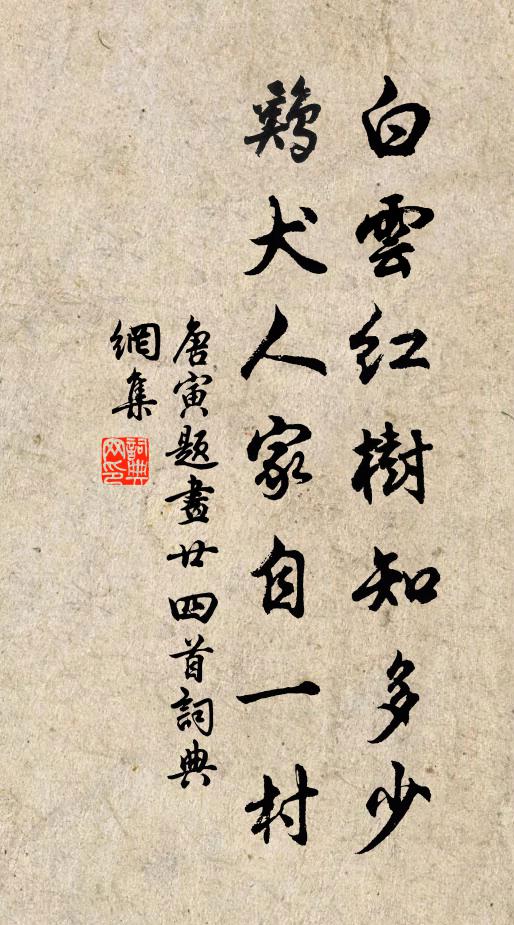 白雲紅樹知多少
鷄犬人家自一村
唐寅題畫廿四首詞典
網集
詞典網印